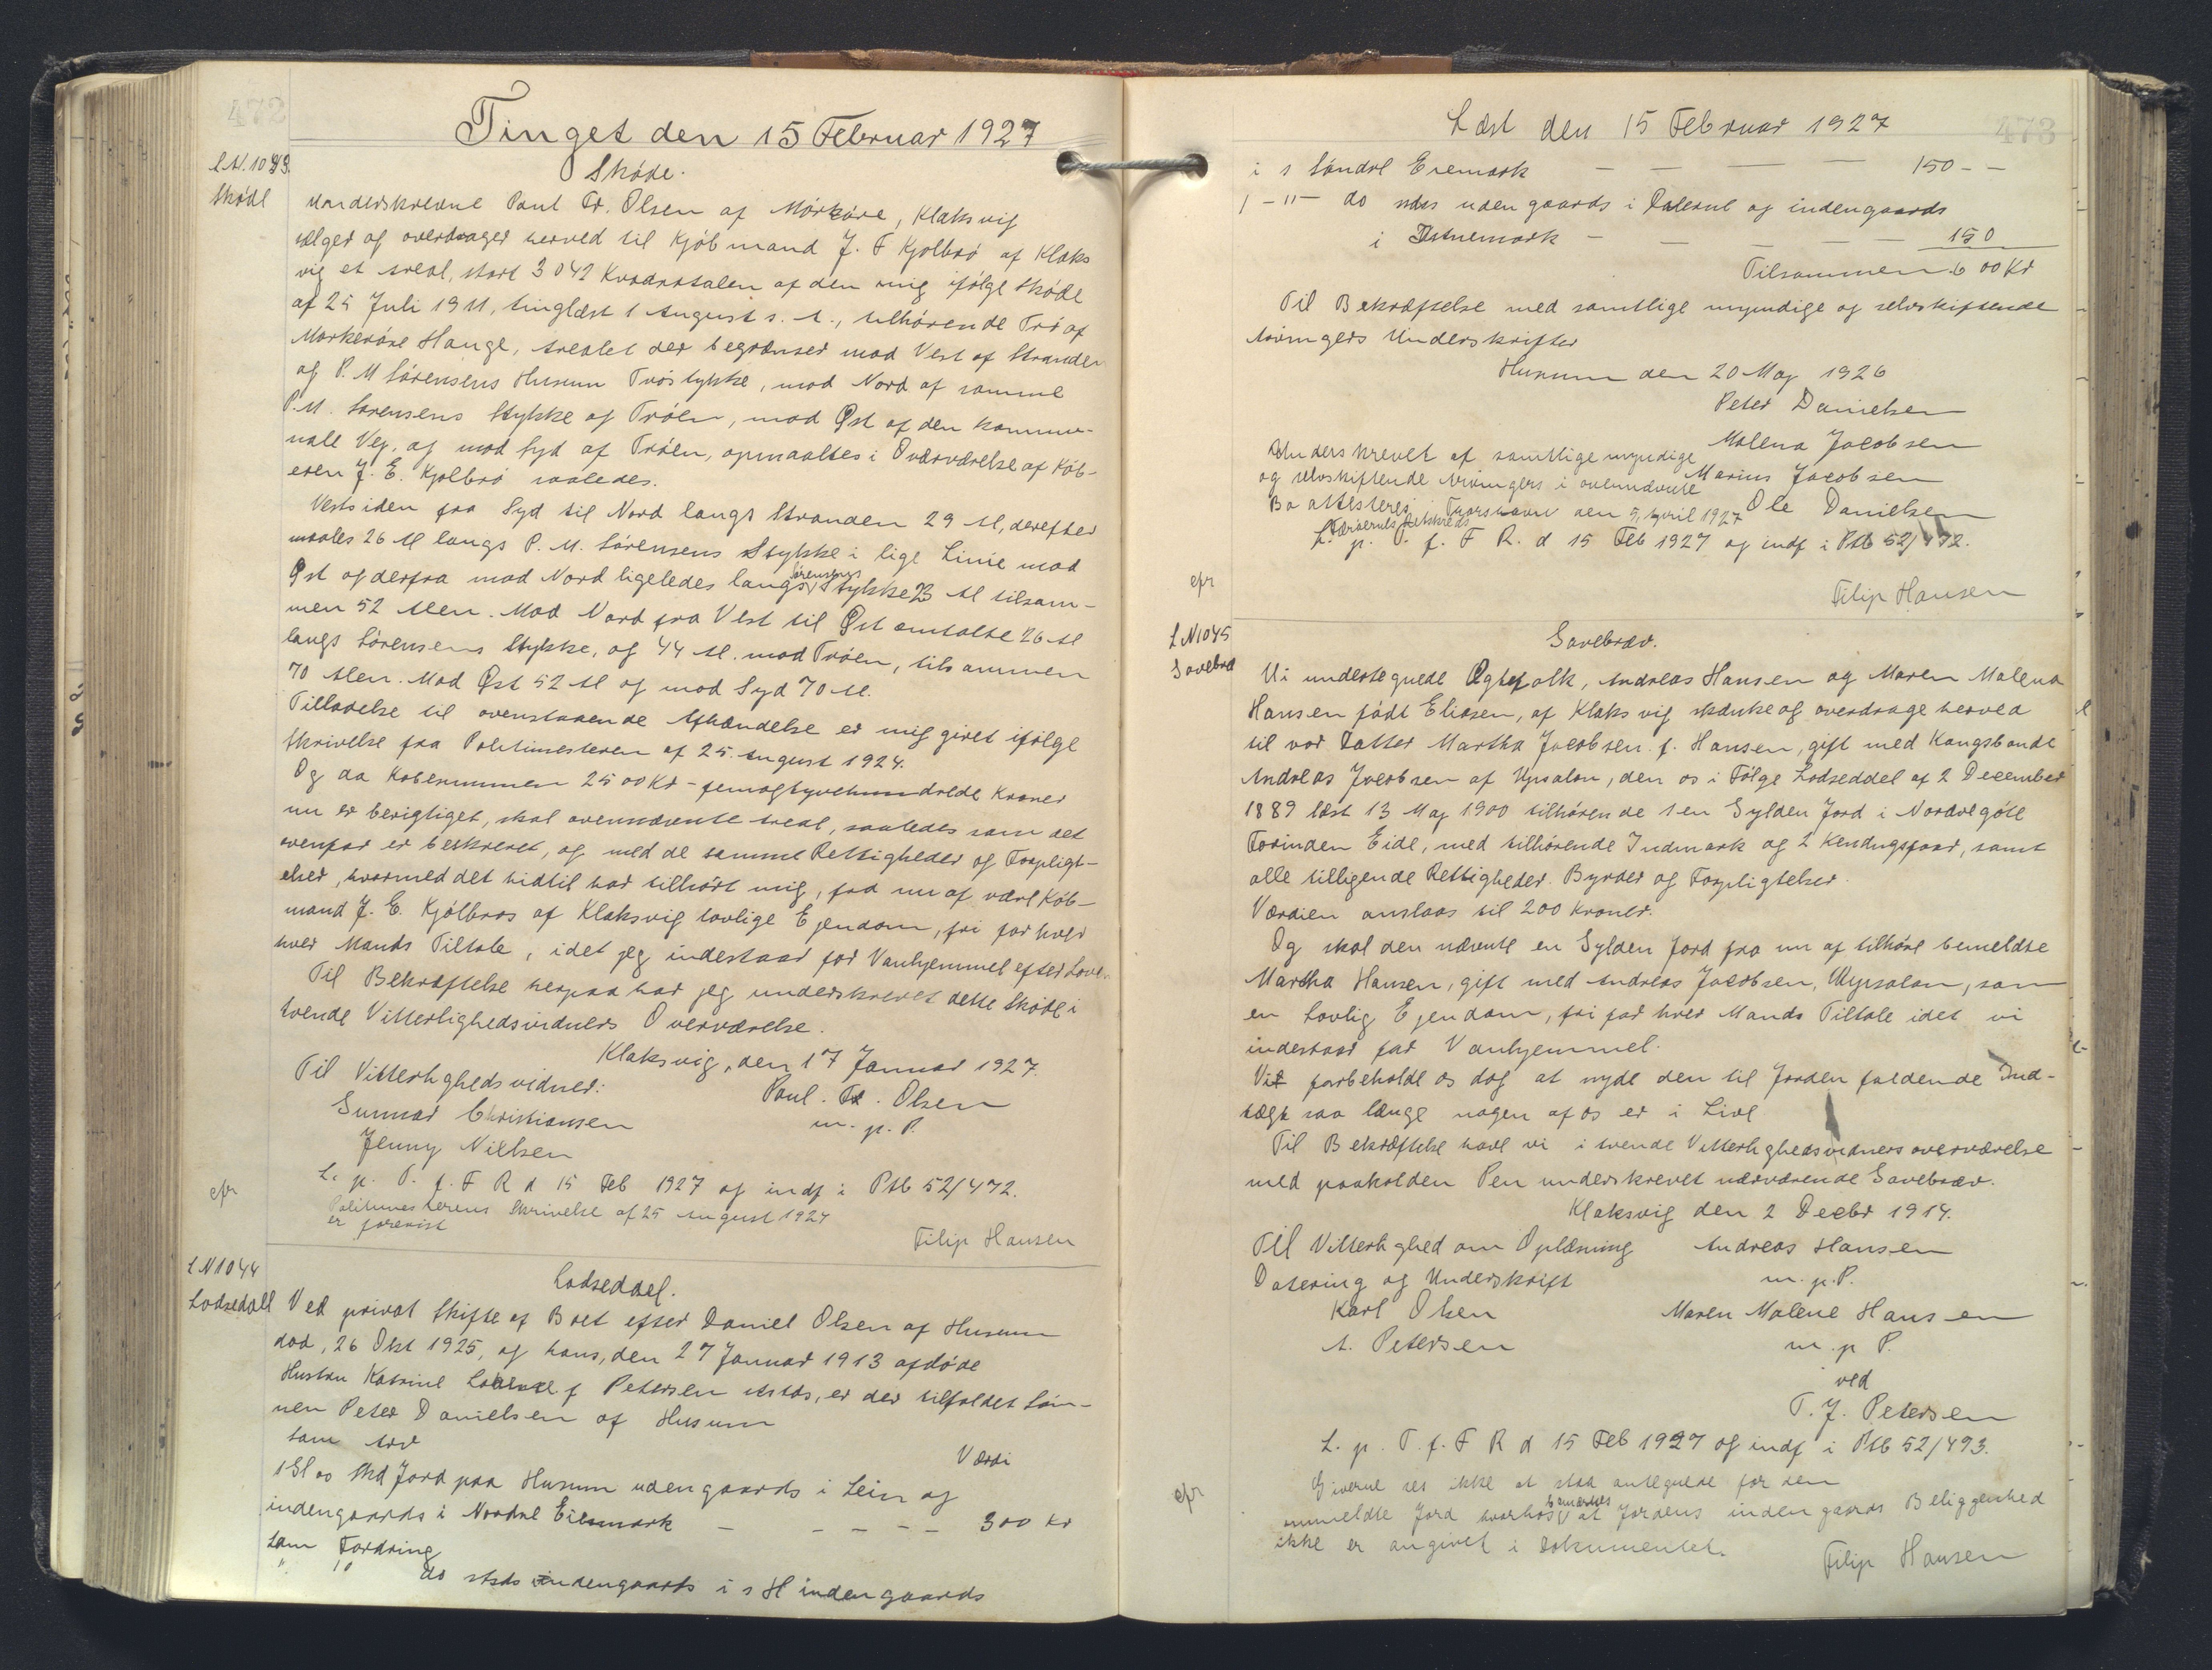 472
Tinget den 15 Februar 1927
L.N. 1043.
Skøde.
Skøde
Underskrevne Poul Fr. Olsen af Mørkøre, Klaksvig
sælger og overdrager herved til Kjøbmand J. F Kjølbro af Klaks
vig et Areal, stort 3042 Kvadratalen af den mig ifølge Skøde
af 25 Juli 1911, tinglæst 1 August s. A., tilhørende Trø af
Mørkøre Hauge, Arealet der begrænses mod Vest af Stranden
og P. M Sørensens Husum Trøstykke, mod Nord af samme
P.M. Sørensens Stykke og Trøen, mod Øst af den kommu-
nale Vej, og mod Syd af Trøen, opmaaltes i Overværelse af Køb-
eren J. E. Kjølbro saaledes.
Vestsiden fra Syd til Nord langs Stranden 29 Al, derefter
maales 26 Al langs P. M. Sørensens Stykke i lige Linie mod
Øst og derfra mod Nord ligeledes langs Sørensens Stykke 23 Al tilsam-
men 52 Alen. Mod Nord fra Vest til Øst omtalte 26 Al
langs Sørensens Stykke, og 44 Al. mod Trøen, tilsammen
70 Alen. Mod Øst 52 Al og mod Syd 70 Al.
Tilladelse til ovenstaaende Afhændelse er mig givet ifølge
Skrivelse fra Politimesteren af 25. August 1924.
Og da Købesummen 2500 Kr - femogtyvehundrede Kroner
nu er berigtiget, skal ovennævnte Areal, saaledes som det
ovenfor er beskrevet, og med de samme Rettigheder og Forpligt-
elser, hvormed det hidtil har tilhørt mig, fra nu af være Køb-
mand J. E. Kjølbros af Klaksvig lovlige Ejendom, fri for hver
hver Mands Tiltale, idet jeg indestaar for Vanhjemmel efter Love.
Til Bekræftelse herpaa har jeg underskrevet dette Skøde i
tvende Vitterlighedsvidners Overværelse.
Klaksvig, den 17 Januar 1927.
Til Vitterlighedsvidner:
Poul. Fr. Olsen
Gunnar Christiansen
m. p. P.
Jenny Nielsen
L. p. T. f. F R d 15 Feb 1927 og indf i Ptb 52/472.
efr
Politimesterens Skrivelse af 25 August 1924
er forevist
Filip Hansen
L N 1044
Lodseddel.
Lodseddel
Ved privat Skifte af Boet efter Daniel Olsen af Husum
død, 26 Okt 1925, og hans, den 27 Januar 1913 afdøde
Hustru Katrine f Petersen stsds, er der tilfaldet Søn-
nen Peter Danielsen af Husum
Som Arv
Værdi
1 Gl 00 Skd Jord paa Husum udengaards i Lein og
indengaards i Nordre Eremark - - - - - 300 Kr
Som Fordring
" 10 do stsds indengaards i s H indengaards
473
Læst den 15 Februar 1927
i s Søndre Eremark - - - - 150 - -
1 - " - do stsds udengaards i og indengaards
i - - - - 150
Tilsammen 600 Kr
Til Bekræftelse med samtlige myndige og selvskiftende
Arvingers Underskrifter
Husum den 20 Maj 1926
Peter Danielsen
Malena Jacobsen
Underskrevet af samtlige myndige
og selvskiftende Arvingers i ovennævnte
Marius Jacobsen
Bo attesteres. Thorshavn den 5, April 1927
Ole Danielsen
Færøernes Retskreds
L. p. T. f. F R. d 15 Feb 1927 og indf i Ptb 52/472.
efr
Filip Hansen
L N 1045
Gavebrev.
Gavebrev
Vi undertegnede Ægtefolk, Andreas Hansen og Maren Malena
Hansen født Eliasen, af Klaksvig skænke og overdrage herved
til vor Datter Martha Jacobsen f. Hansen, gift med Kongsbonde
Andreas Jacobsen af Ypsalon, den os i Følge Lodseddel af 2 December
1889 læst 13 Maj 1900 tilhørende 1 en Gylden Jord i Nordregøte
Forinden Eide, med tilhørende Indmark og 2 Kendingsfaar, samt
alle tilligende Rettigheder. Byrder og Forpligtelser.
Værdien anslaas til 200 Kroner.
Og skal den nævnte en Gylden Jord fra nu af tilhøre bemeldte
Martha Hansen, gift med Andreas Jacobsen, Uypsalon, som
en Lovlig Ejendom, fri for hver Mands Tiltale idet vi
indestaar for Vanhjemmel.
Vi forbeholde os dog at nyde den til Jorden faldende Ind-
tægt saa længe nogen af os er i Live
Til Bekræftelse have vi i tvende Vitterlighedsvidners overværelse
med paaholden Pen underskrevet nærværende Gavebrev.
Klaksvig den 2 Decbr 1914.
Til Vitterlighed om Oplæsning
Andreas Hansen
Datering og Underskrift
m. p. P.
Karl Olsen
Maren Malene Hansen
A. Petersen
m. p P.
ved
T. J. Petersen
L. p. T. f. F R d 15 Feb 1927 og indf i Ptb 52/473.
efr
Giverne ses ikke at staa antegnede for den
ommeldte Jord hvorhos bemærkes at Jordens indengaards Beliggenhed
ikke er angivet i Dokumentet.
Filip Hansen